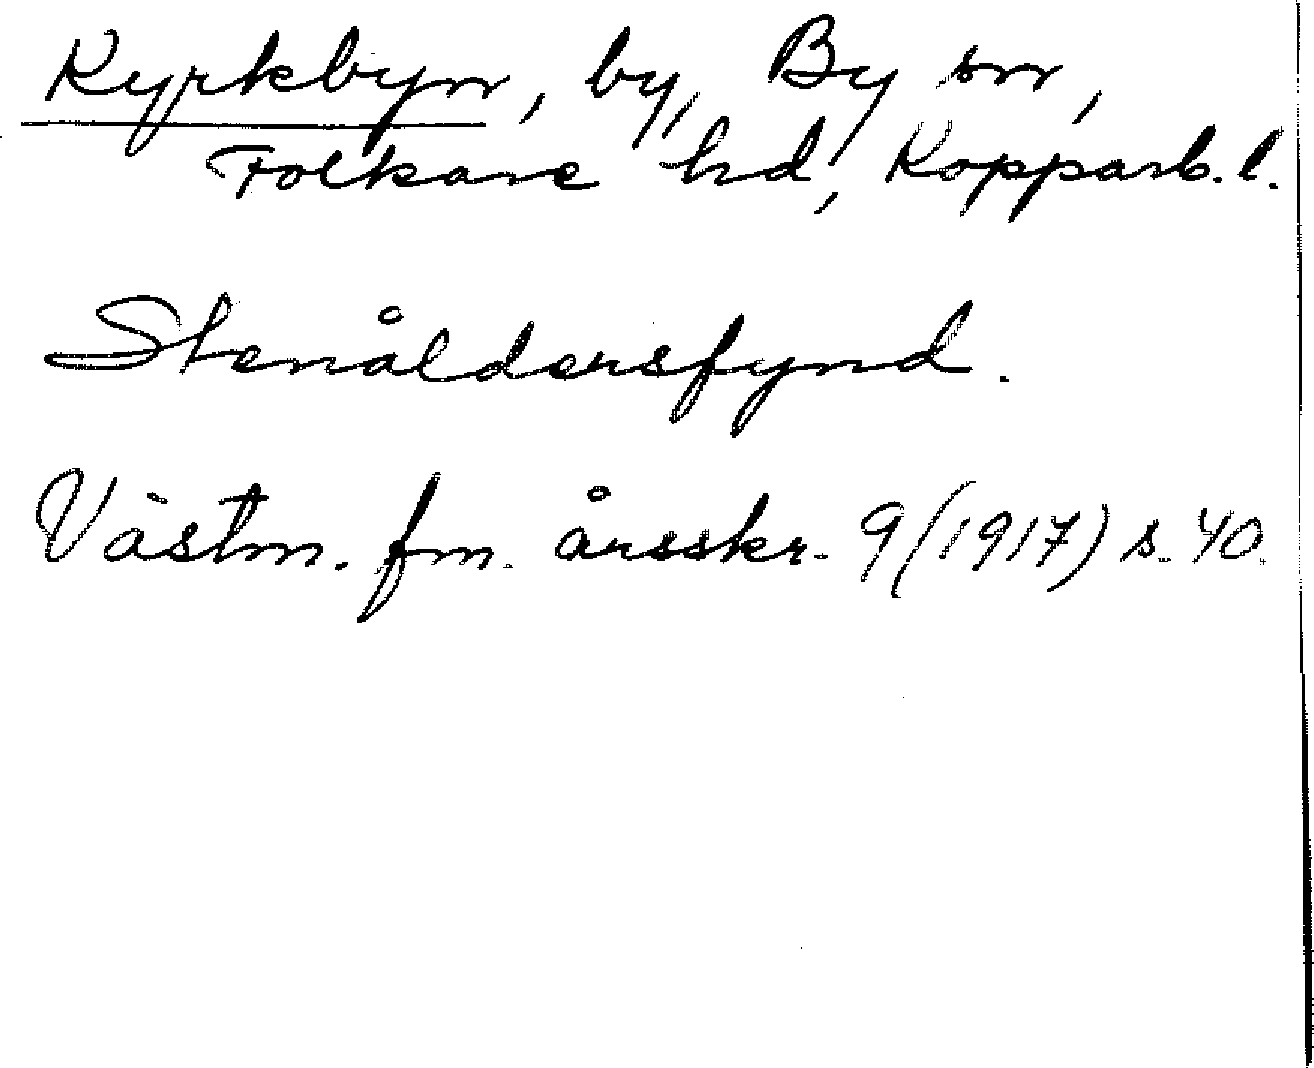 Kyrkbyn, by, By sn,
Folkare hd, Kopparb. l.
Stenåldersfynd.
Västm. fm. årsskr. 9 (1917) s. 40.